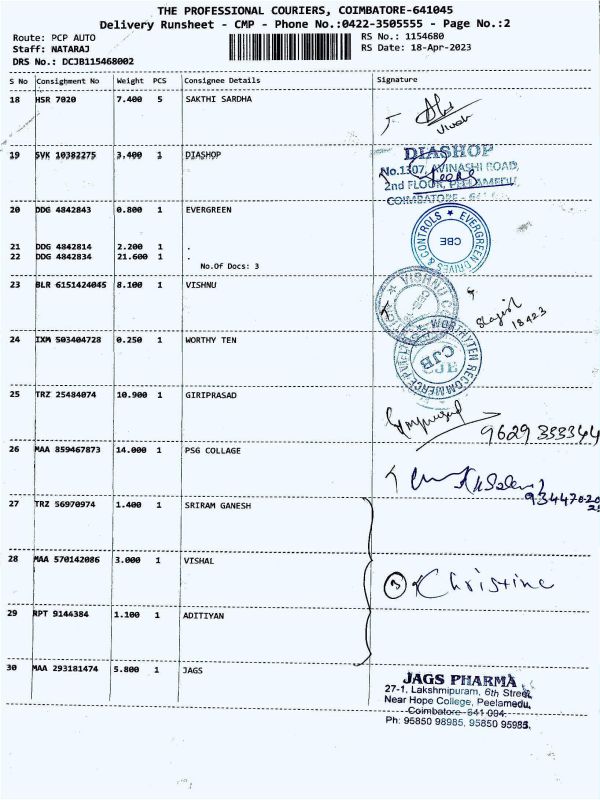 THE PROFESSIONAL COURIERS, COIMBATORE-641045
Delivery Runsheet - CMP - Phone No.:0422-3505555 - Page No.:2
Route: PCP AUTO
Staff: NATARAJ
DRS No.: DCJB115468002
RS No.: 1154680
RS Date: 18-Apr-2023
S No Consignment No Weight PCS Consignee Details Signature
18 HSR 7020 7.400 5 SAKTHI SARDHA
19 SVK 10382275 3.400 1 DIASHOP
DIASHOP
No.1307, AVINASHI ROAD,
2nd FLOOR, PEELAMEDU,
COIMBATORE - 641
20 DDG 4842843 0.800 1 EVERGREEN
EVERGREEN DRIVES & CONTROLS
CBE
21 DDG 4842814 2.200 1 .
22 DDG 4842834 21.600 1 .
No.Of Docs: 3
23 BLR 6151424045 8.100 1 VISHNU
VISHNU
18423
24 IXM 503404728 0.250 1 WORTHY TEN
WORTHYTEN RECOMMERCE
CJB
25 TRZ 25484074 10.900 1 GIRIPRASAD
9629333344
26 MAA 859467873 14.000 1 PSG COLLAGE
27 TRZ 56970974 1.400 1 SRIRAM GANESH
28 MAA 570142086 3.000 1 VISHAL
3 Christine
29 RPT 9144384 1.100 1 ADITIYAN
30 MAA 293181474 5.800 1 JAGS
JAGS PHARMA
27-1, Lakshmipuram, 6th Street,
Near Hope College, Peelamedu,
Coimbatore-641 004.
Ph: 95850 98985, 95850 95985.